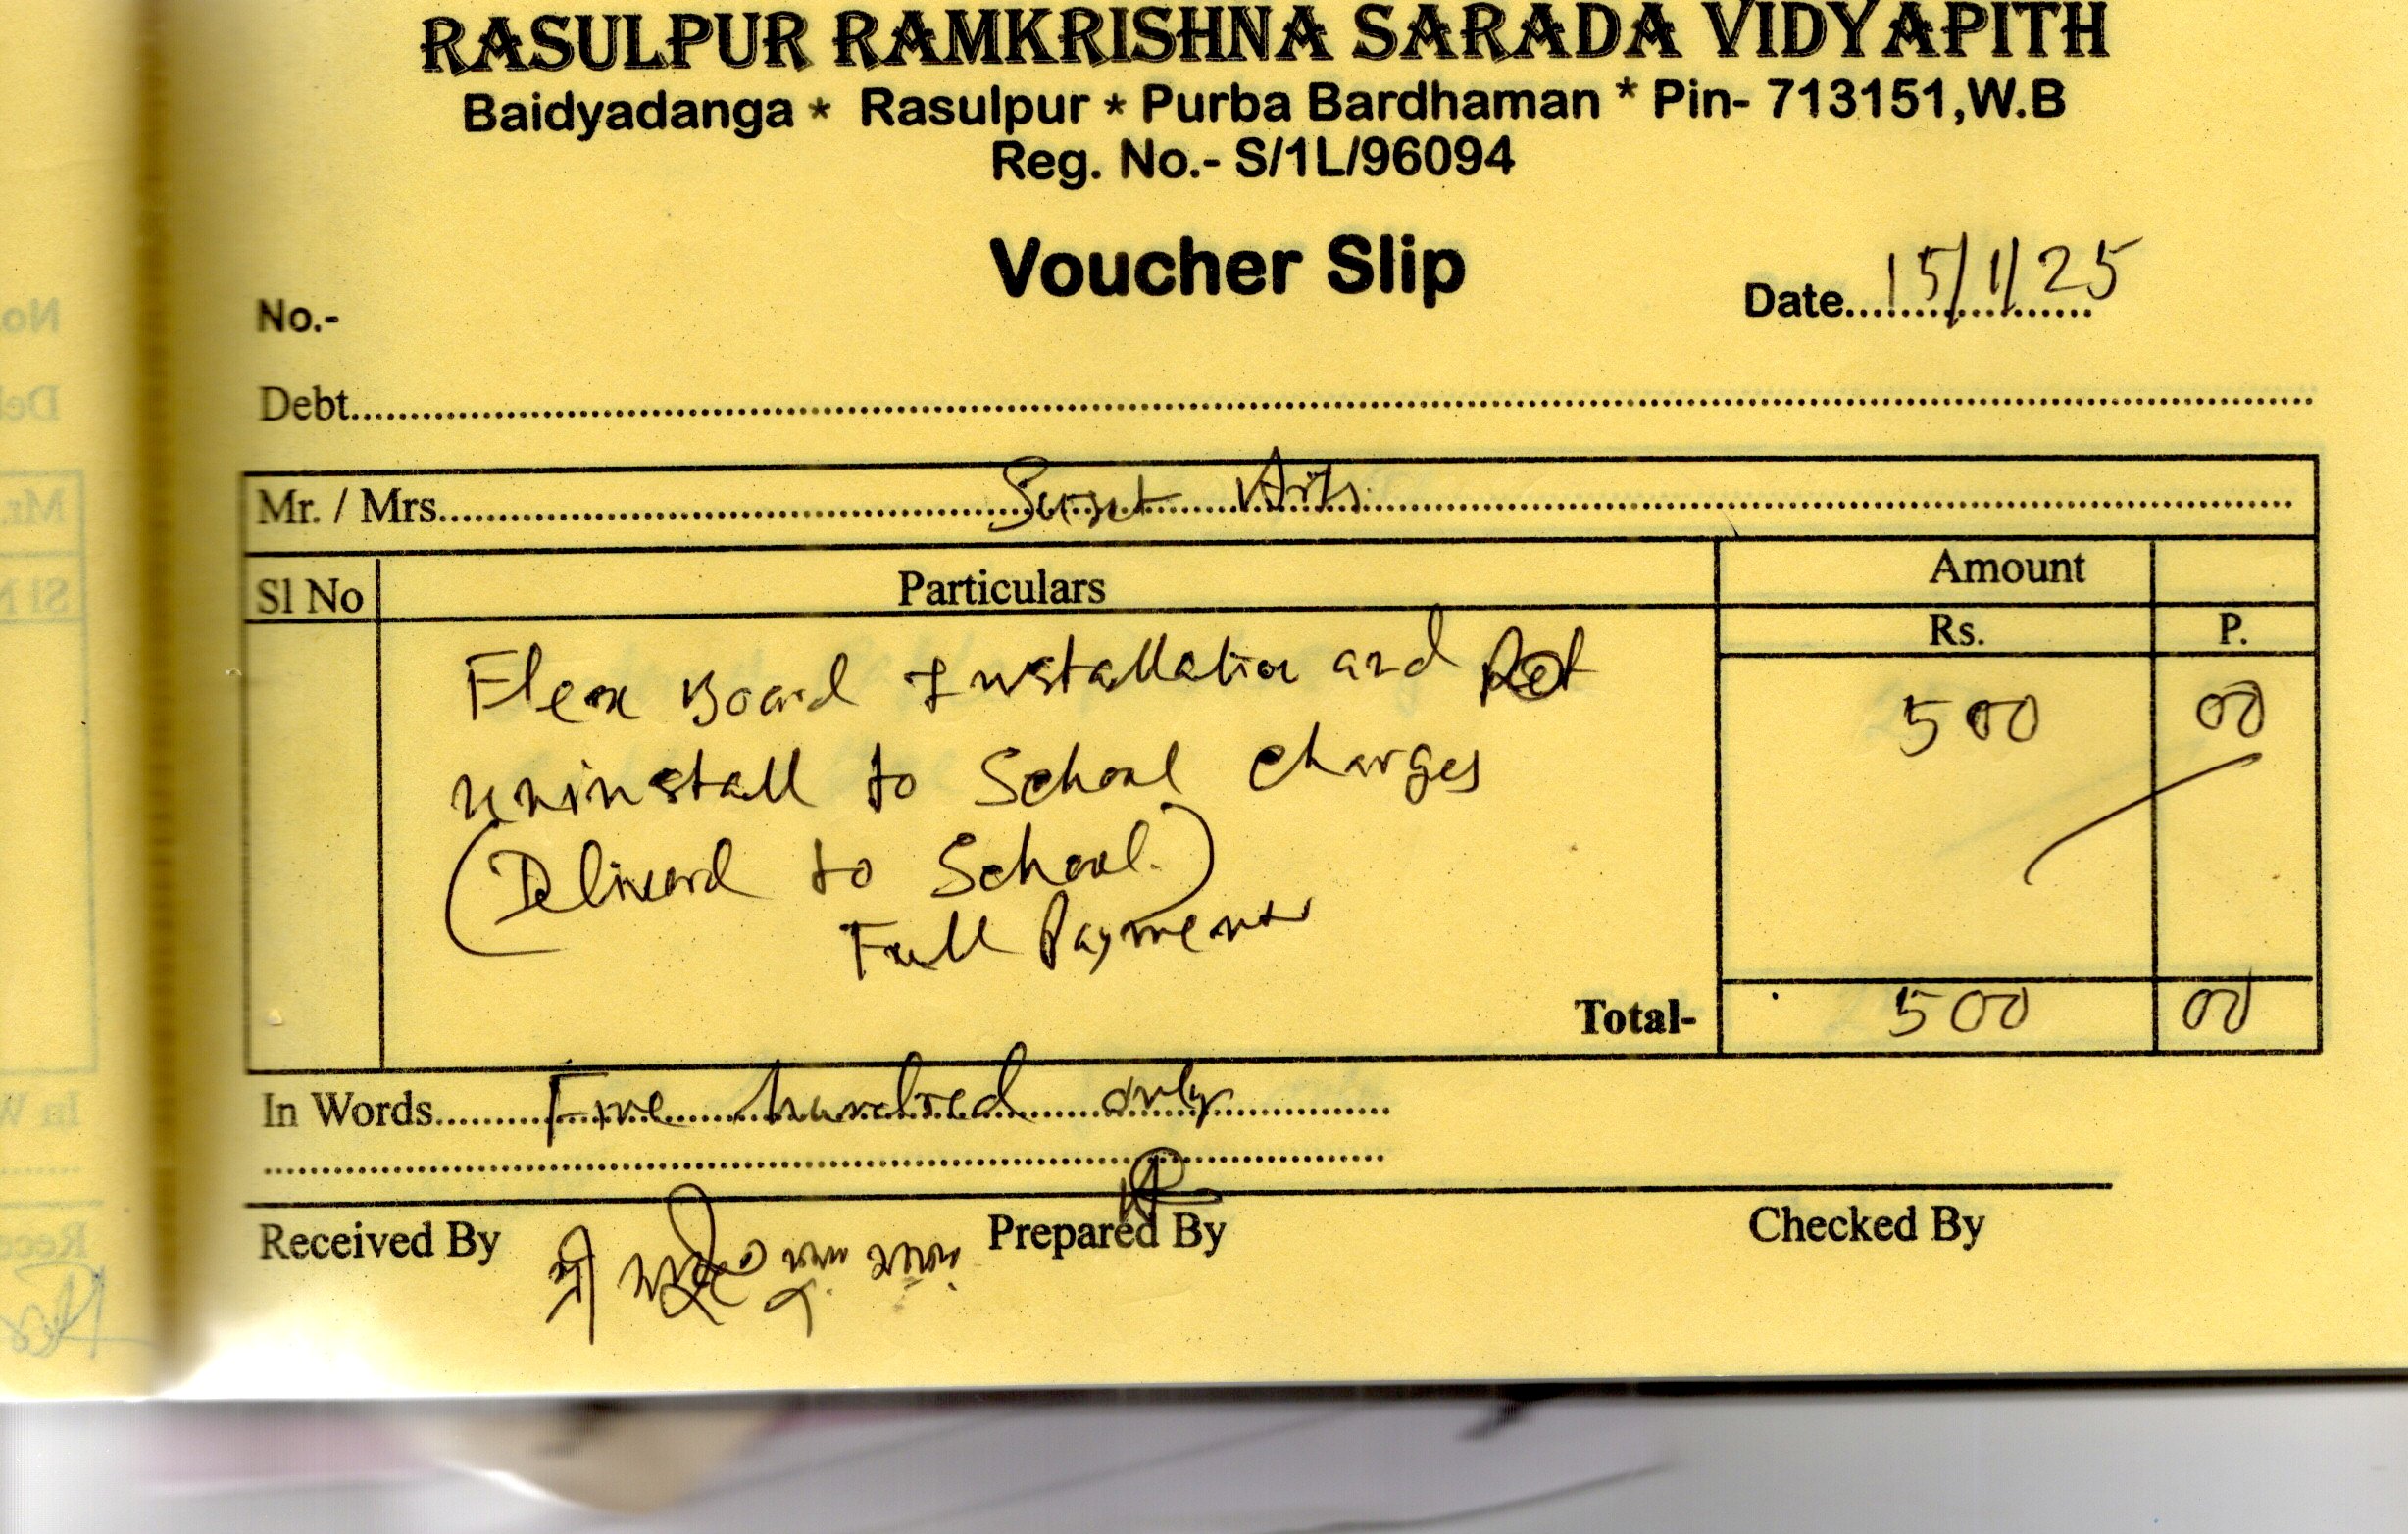 RASULPUR RAMKRISHNA SARADA VIDYAPITH
Baidyadanga * Rasulpur * Purba Bardhaman * Pin- 713151,W.B
Reg. No.- S/1L/96094
Voucher Slip
No.-
Date 15/1/25
Debt
Mr. / Mrs. Arts
Sl No Particulars Amount
Rs. P.
Flex Board Installation and
uninstall to School charges 500 00
(Deliverd to School.)
Full Payment
Total- 500 00
In Words Five hundred only
Received By শ্রী Prepared By Checked By